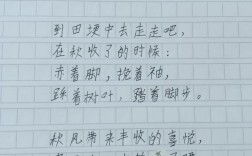 到田埂中去走走吧，
在秋收了的时候：
赤着脚，挽着袖，
踩着树叶，踏着脚步。
秋风带来丰收的喜悦，